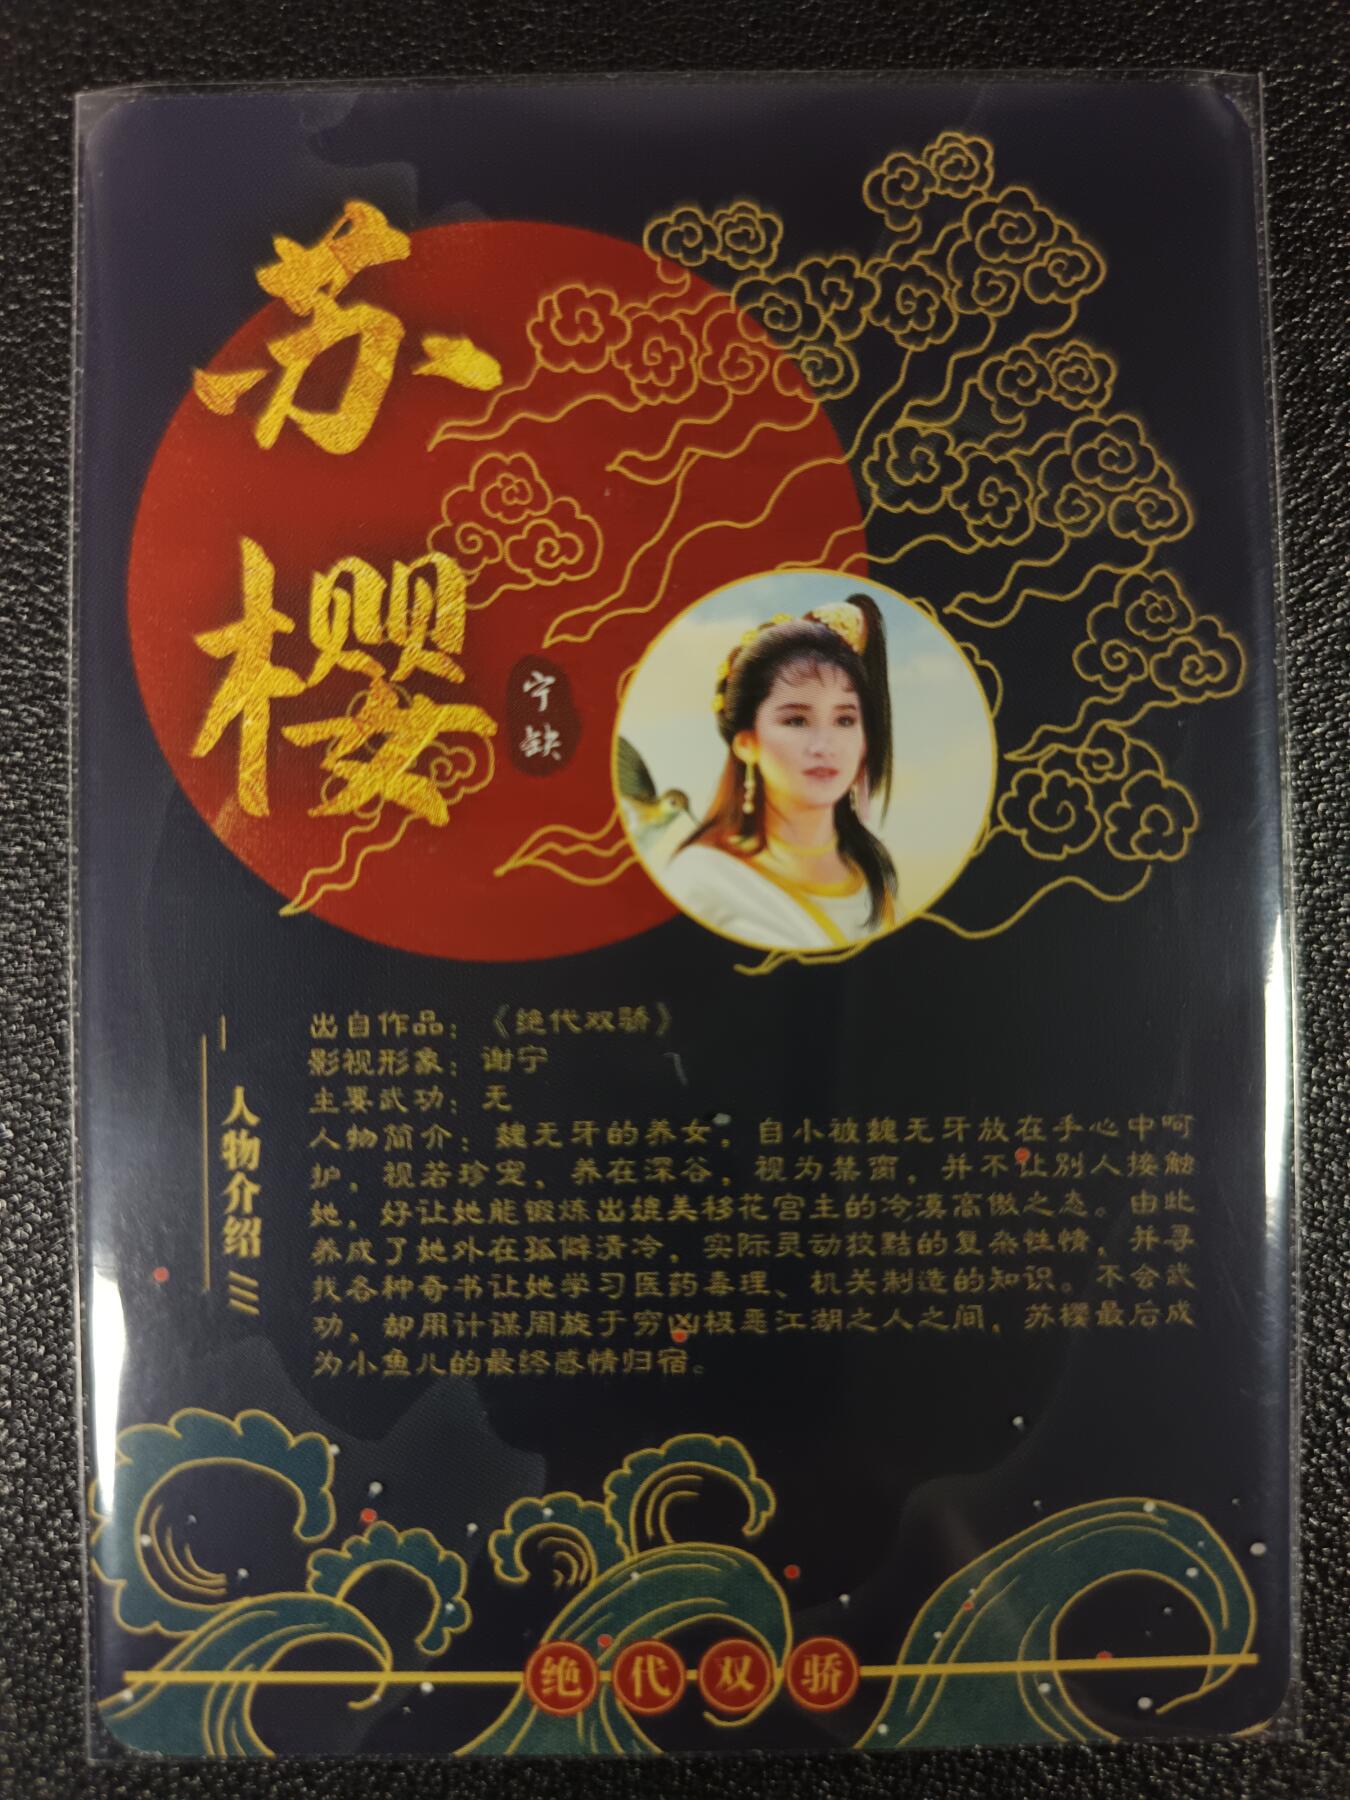 苏樱
宁缺
人物介绍
出自作品：《绝代双骄》
影视形象：谢宁
主要武功：无
人物简介：魏无牙的养女，自小被魏无牙放在手心中呵
护，视若珍宠，养在深谷，视为禁脔，并不让别人接触
她，好让她能锻炼出媲美移花宫主的冷漠高傲之态。由此
养成了她外在孤僻清冷，实际灵动狡黠的复杂性情，并寻
找各种奇书让她学习医药毒理、机关制造的知识。不会武
功，却用计谋周旋于穷凶极恶江湖之人之间，苏樱最后成
为小鱼儿的最终感情归宿。
绝代双骄